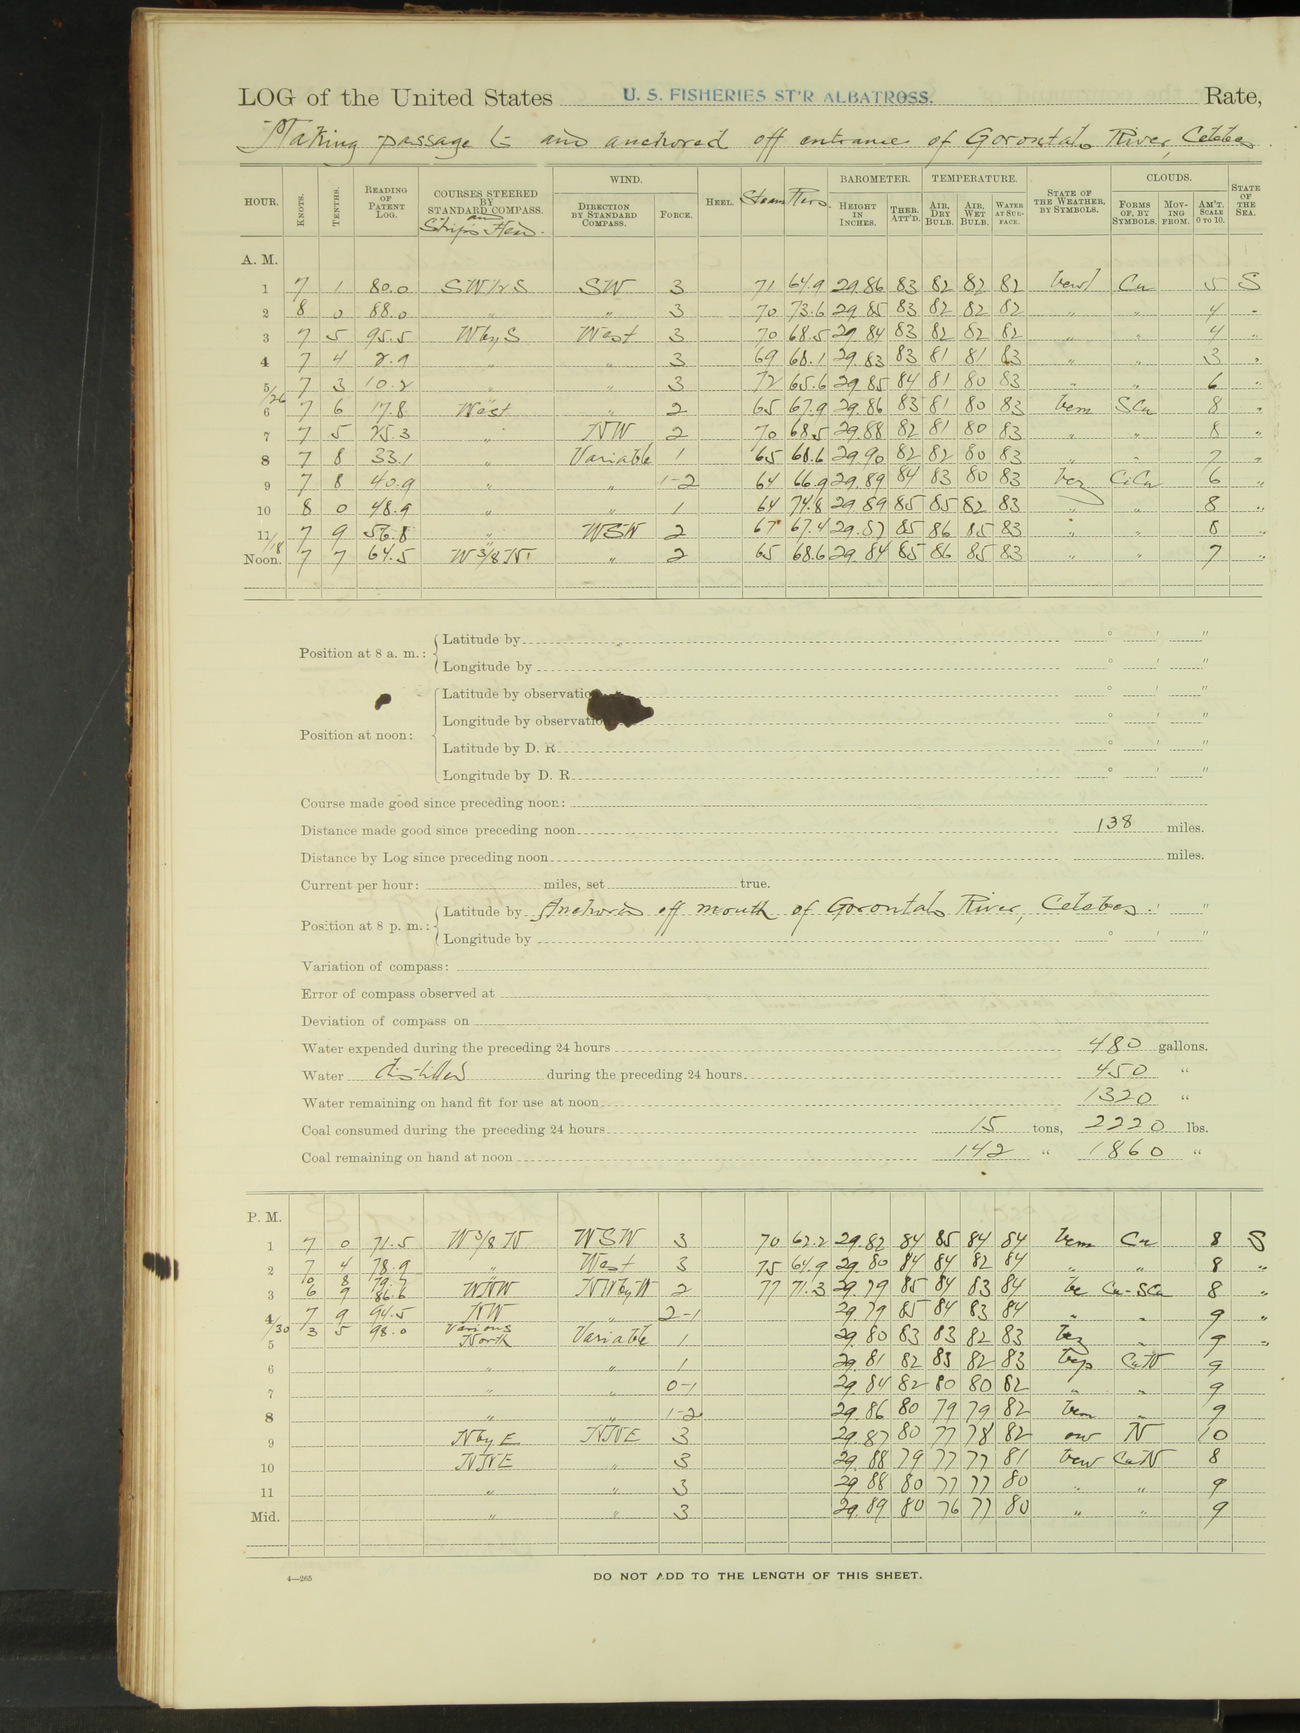 LOG of the United States U. S. FISHERIES ST'R ALBATROSS. Rate,
Making passage to and anchored off entrance of Gorontalo River, Celebes
HOUR. KNOTS. TENTHS. READING OF PATENT LOG. COURSES STEERED BY STANDARD COMPASS. and Ship's Head. WIND. DIRECTION BY STANDARD COMPASS. FORCE. HEEL. Steam Revs. BAROMETER. HEIGHT IN INCHES. THER. ATT'D. TEMPERATURE. AIR, DRY BULB. AIR, WET BULB. WATER AT SURFACE. STATE OF THE WEATHER, BY SYMBOLS. CLOUDS. FORMS OF, BY SYMBOLS. MOVING FROM. AM'T. SCALE 0 TO 10. STATE OF THE SEA.
A. M.
1 7 1 80.0 SW SW 3 71 64.9 29.86 83 82 82 82 Cu 5 S
2 8 0 88.0 " " 3 70 73.6 29.85 83 82 82 82 " " 4 "
3 7 5 95.5 WbyS West 3 70 68.5 29.84 83 82 82 82 " " 4 "
4 7 4 2.9 " " 3 69 68.1 29.83 83 81 81 83 " " 3 "
5 7 3 10.2 " " 3 72 65.6 29.85 84 81 80 83 " " 6 "
5/26
6 7 6 17.8 West " 2 65 67.9 29.86 83 81 80 83 bcm SCu 8 "
7 7 5 25.3 " NW 2 70 68.5 29.88 82 81 80 83 " " 8 "
8 7 8 33.1 " Variable 1 65 68.6 29.90 82 82 80 83 " " 7 "
9 7 8 40.9 " " 1-2 64 66.9 29.89 84 83 80 83 bcz CiCu 6 "
10 8 0 48.9 " " 1 64 74.8 29.89 85 85 82 83 " " 8 "
11 7 9 56.8 " WSW 2 67 67.4 29.87 85 86 85 83 " " 8 "
11/18
Noon. 7 7 64.5 W 3/8 N " 2 65 68.6 29.84 85 86 85 83 " " 7 "
Position at 8 a. m.: Latitude by ° ' "
Longitude by ° ' "
Position at noon: Latitude by observation ° ' "
Longitude by observatio ° ' "
Latitude by D. R. ° ' "
Longitude by D. R. ° ' "
Course made good since preceding noon:
Distance made good since preceding noon 138 miles.
Distance by Log since preceding noon miles.
Current per hour: miles, set true.
Position at 8 p. m.: Latitude by Anchored off mouth of Gorontalo River, Celebes. ' "
Longitude by ° ' "
Variation of compass:
Error of compass observed at
Deviation of compass on
Water expended during the preceding 24 hours 480 gallons.
Water distilled during the preceding 24 hours 450 "
Water remaining on hand fit for use at noon 1320 "
Coal consumed during the preceding 24 hours 15 tons, 2220 lbs.
Coal remaining on hand at noon 142 " 1860 "
P. M.
1 7 0 71.5 W 3/8 N WSW 3 70 62.2 29.82 84 85 84 84 bcm Cu 8 S
2 7 4 78.9 " West 3 75 64.9 29.80 84 84 82 84 " " 8 "
0 8 79.7
3 6 9 86.6 WNW NWbyW 2 77 71.3 29.79 85 84 83 84 bc Cu-SCu 8 "
4 7 9 94.5 NW " 2-1 29.79 85 84 83 84 " " 9 "
4/30 3 5 98.0 Various
5 North Variable 1 29.80 83 83 82 83 bcz " 9 "
6 " " 1 29.81 82 83 82 83 bcp CuN 9
7 " " 0-1 29.84 82 80 80 82 " " 9
8 " " 1-2 29.86 80 79 79 82 bcm " 9
9 NbyE NNE 3 29.87 80 77 78 82 ow N 10
10 NNE " 3 29.88 79 77 77 81 bcw CuN 8
11 " " 3 29.88 80 77 77 80 " " 9
Mid. " " 3 29.89 80 76 77 80 " " 9
4—265
DO NOT ADD TO THE LENGTH OF THIS SHEET.